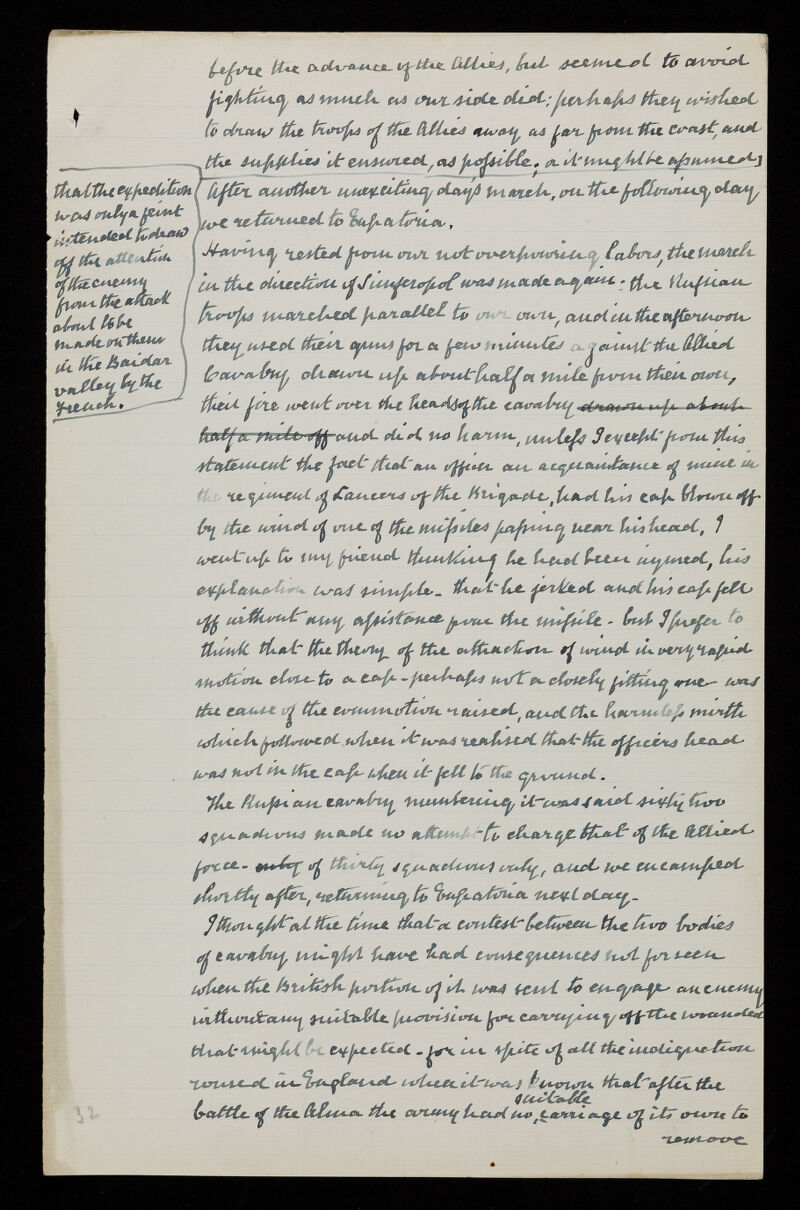 before the advance of the Allies, but seemed to avoid
fighting as much as our side did; perhaps they wished
to draw the troops of the Allies away as far from the coast, and
the supplies it ensured, as possible; or it might be assumed
that the expedition
was only a feint
intended to draw
off the attention
of the enemy
from the attack
about to be
made on them
in the Baidar
valley by the
French.
After another unexciting day's march, on the following day
we returned to Eupatoria.
Having rested from our not overpowering labors, the march
in the direction of Simferopol was made again: the Russian
troops marched parallel to our own, and in the afternoon
they used their guns for a few minutes against the Allied
Cavalry drawn up about half a mile from their own,
their fire went over the heads of the cavalry drawn up about
half a mile off and did no harm, unless I except from this
statement the fact that an officer an acquaintance of mine in
the regiment of Lancers of the Brigade, had his cap blown off
by the wind of one of the missiles passing near his head, I
went up to my friend thinking he had been injured, his
explanation was simple - that he jerked and his cap fell
off without any assistance from the missile - but I prefer to
think that the theory of the attraction of wind in very rapid
motion close to a cap - perhaps not a closely fitting one - was
the cause of the commotion raised, and the harmless mirth
which followed when it was realised that the officers head
was not in the cap when it fell to the ground.
The Russian cavalry numbering it was said sixty two
squadrons made no attempt to charge that of the Allied
force - only of thirty squadrons only, and we encamped
shortly after, returning to Eupatoria next day -
I thought at the time that a contest between the two bodies
of cavalry might have had consequences not forseen
when the British portion of it was sent to engage an enemy
without any suitable provision for carrying off the wounded
that might be expected - for in spite of all the indignation
roused in England when it was known that after the
suitable
battle of the Alma the army had no carriage of its own to
remove
32